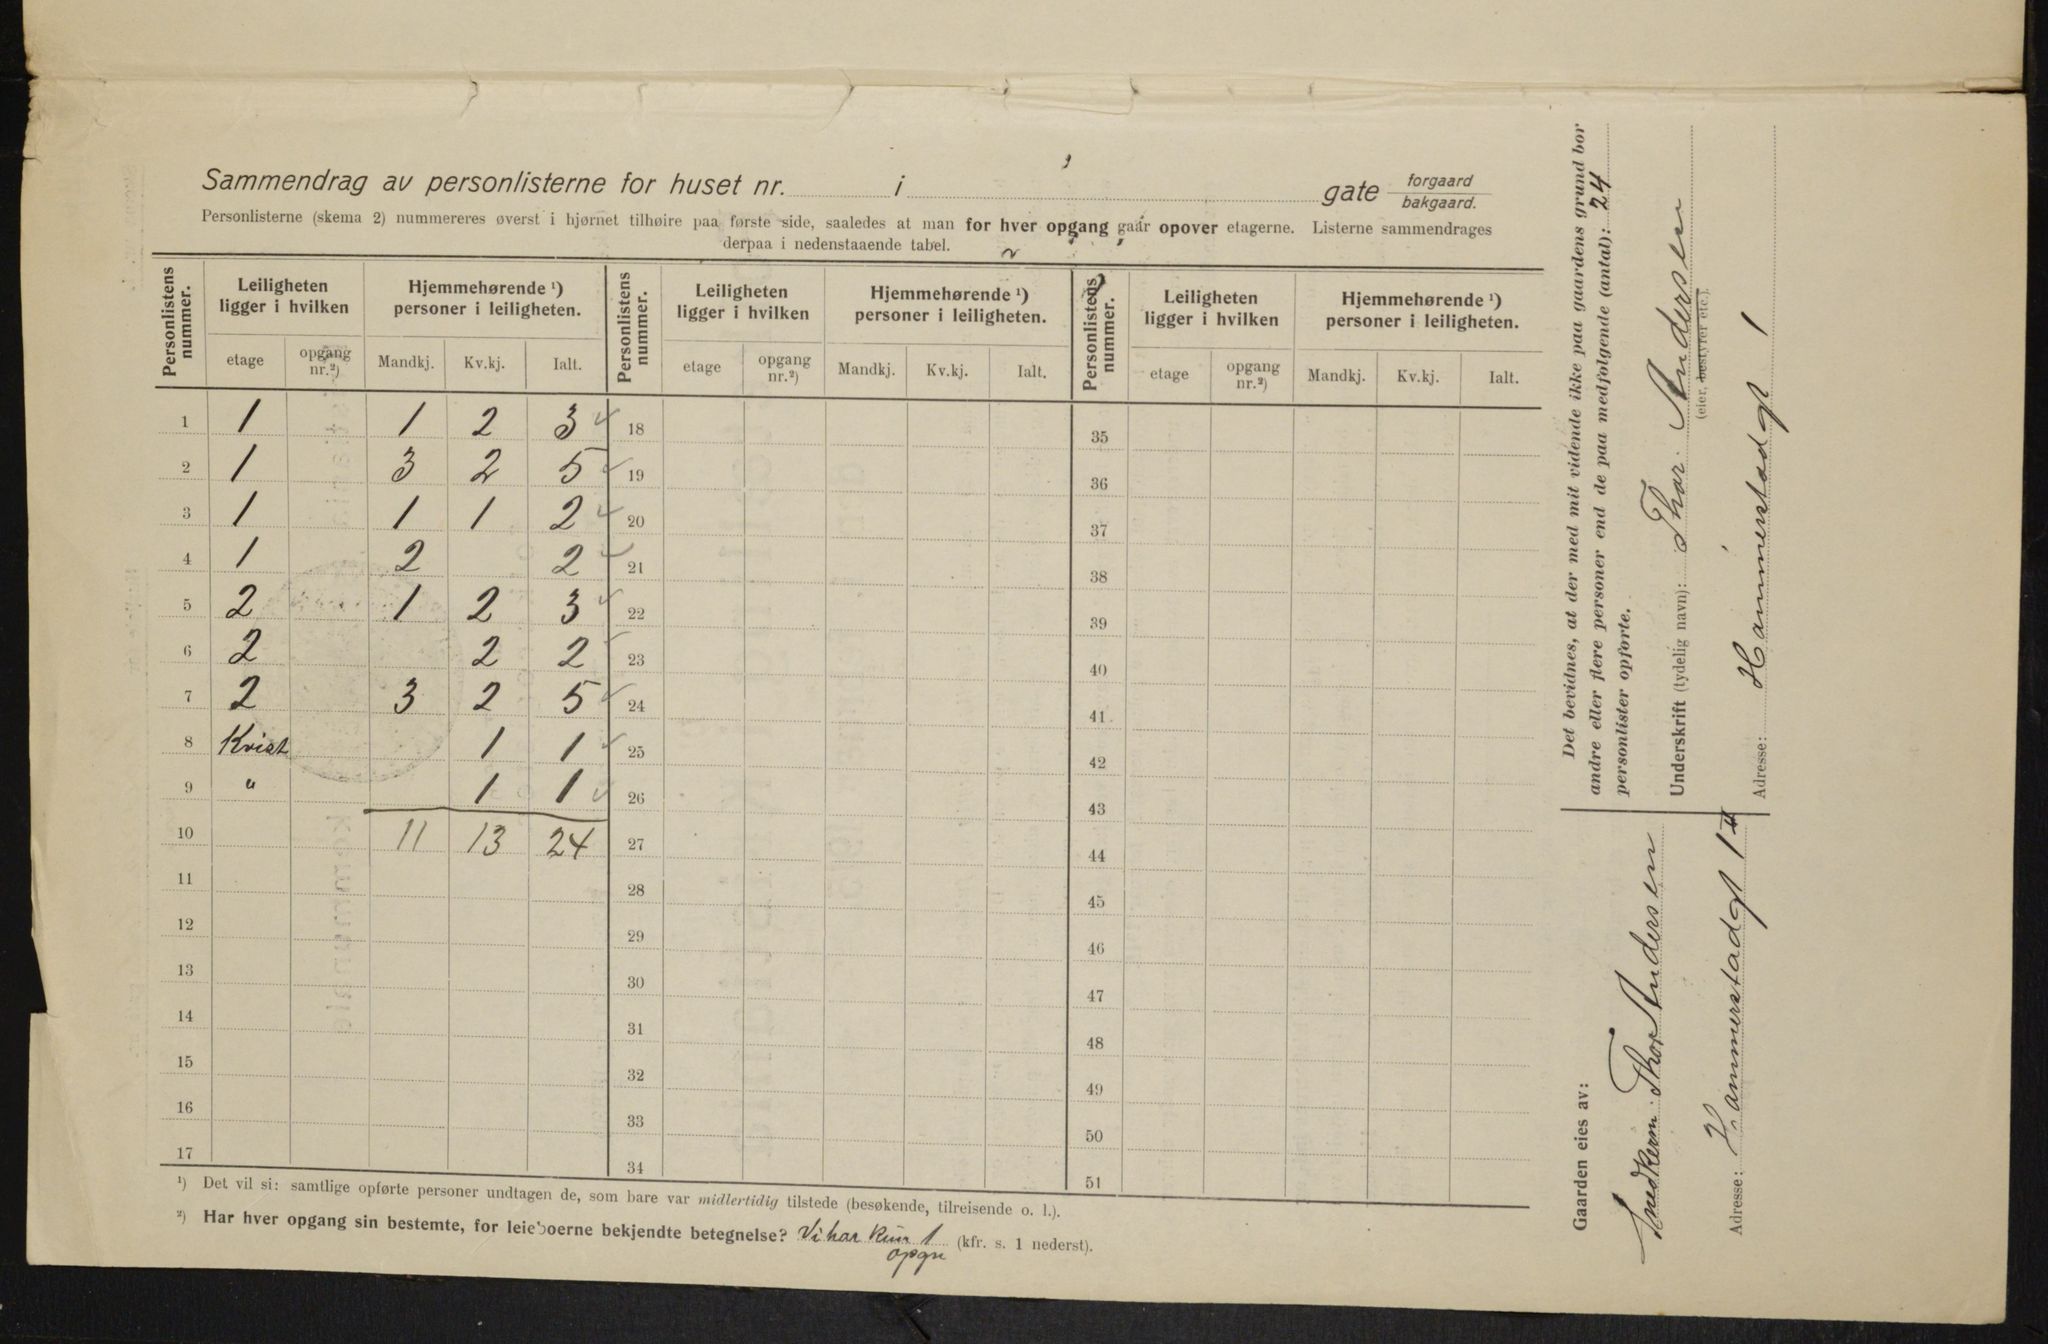 Sammendrag av personlisterne for huset nr. i gate forgaard bakgaard.
Personlisterne (skema 2) nummereres øverst i hjørnet tilhøire paa første side, saaledes at man for hver opgang gaar opover etagerne. Listerne sammendrages
derpaa i nedenstaaende tabel.
Personlistens nummer. Leiligheten ligger i hvilken Hjemmehørende ¹) personer i leiligheten. Personlistens nummer. Leiligheten ligger i hvilken Hjemmehørende ¹) personer i leiligheten. Personlistens nummer. Leiligheten ligger i hvilken Hjemmehørende ¹) personer i leiligheten.
etage opgang nr.²) Mandkj. Kv.kj. Ialt. etage opgang nr.²) Mandkj. Kv.kj. Ialt. etage opgang nr.²) Mandkj. Kv.kj. Ialt.
1 1 1 2 3 18 35
2 1 3 2 5 19 36
3 1 1 1 2 20 37
4 1 2 2 21 38
5 2 1 2 3 22 39
6 2 2 2 23 40
7 2 3 2 5 24 41
8 Kvist 1 1 25 42
9 " 1 1 26 43
10 11 13 24 27 44
11 28 45
12 29 46
13 30 47
14 31 48
15 32 49
16 33 50
17 34 51
¹) Det vil si: samtlige opførte personer undtagen de, som bare var midlertidig tilstede (besøkende, tilreisende o. l.).
²) Har hver opgang sin bestemte, for leieboerne bekjendte betegnelse? Vi har kun 1 (kfr. s. 1 nederst).
opgn
Det bevidnes, at der med mit vidende ikke paa gaardens grund bor
andre eller flere personer end de paa medfølgende (antal): 24
personlister opførte.
Underskrift (tydelig navn): Thor. Andersen
(eier, bestyrer etc.).
Adresse: Hammerstadgt 1
Gaarden eies av:
Snedkerm. Thor Andersen
Adresse: Hammerstadgt 1 II